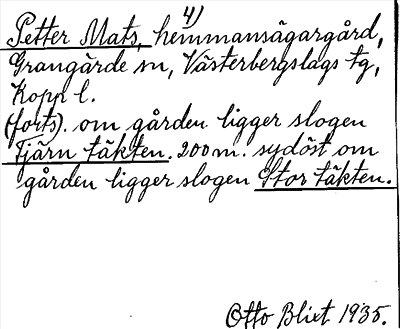 4)
Petter Mats, hemmansägargård,
Grangärde sn, Västerbergslags tg,
Kopp l.
(forts). om gården ligger slogen
Tjärn täkten. 200 m. sydöst om
gården ligger slogen Stor täkten.
Otto Blixt 1935.